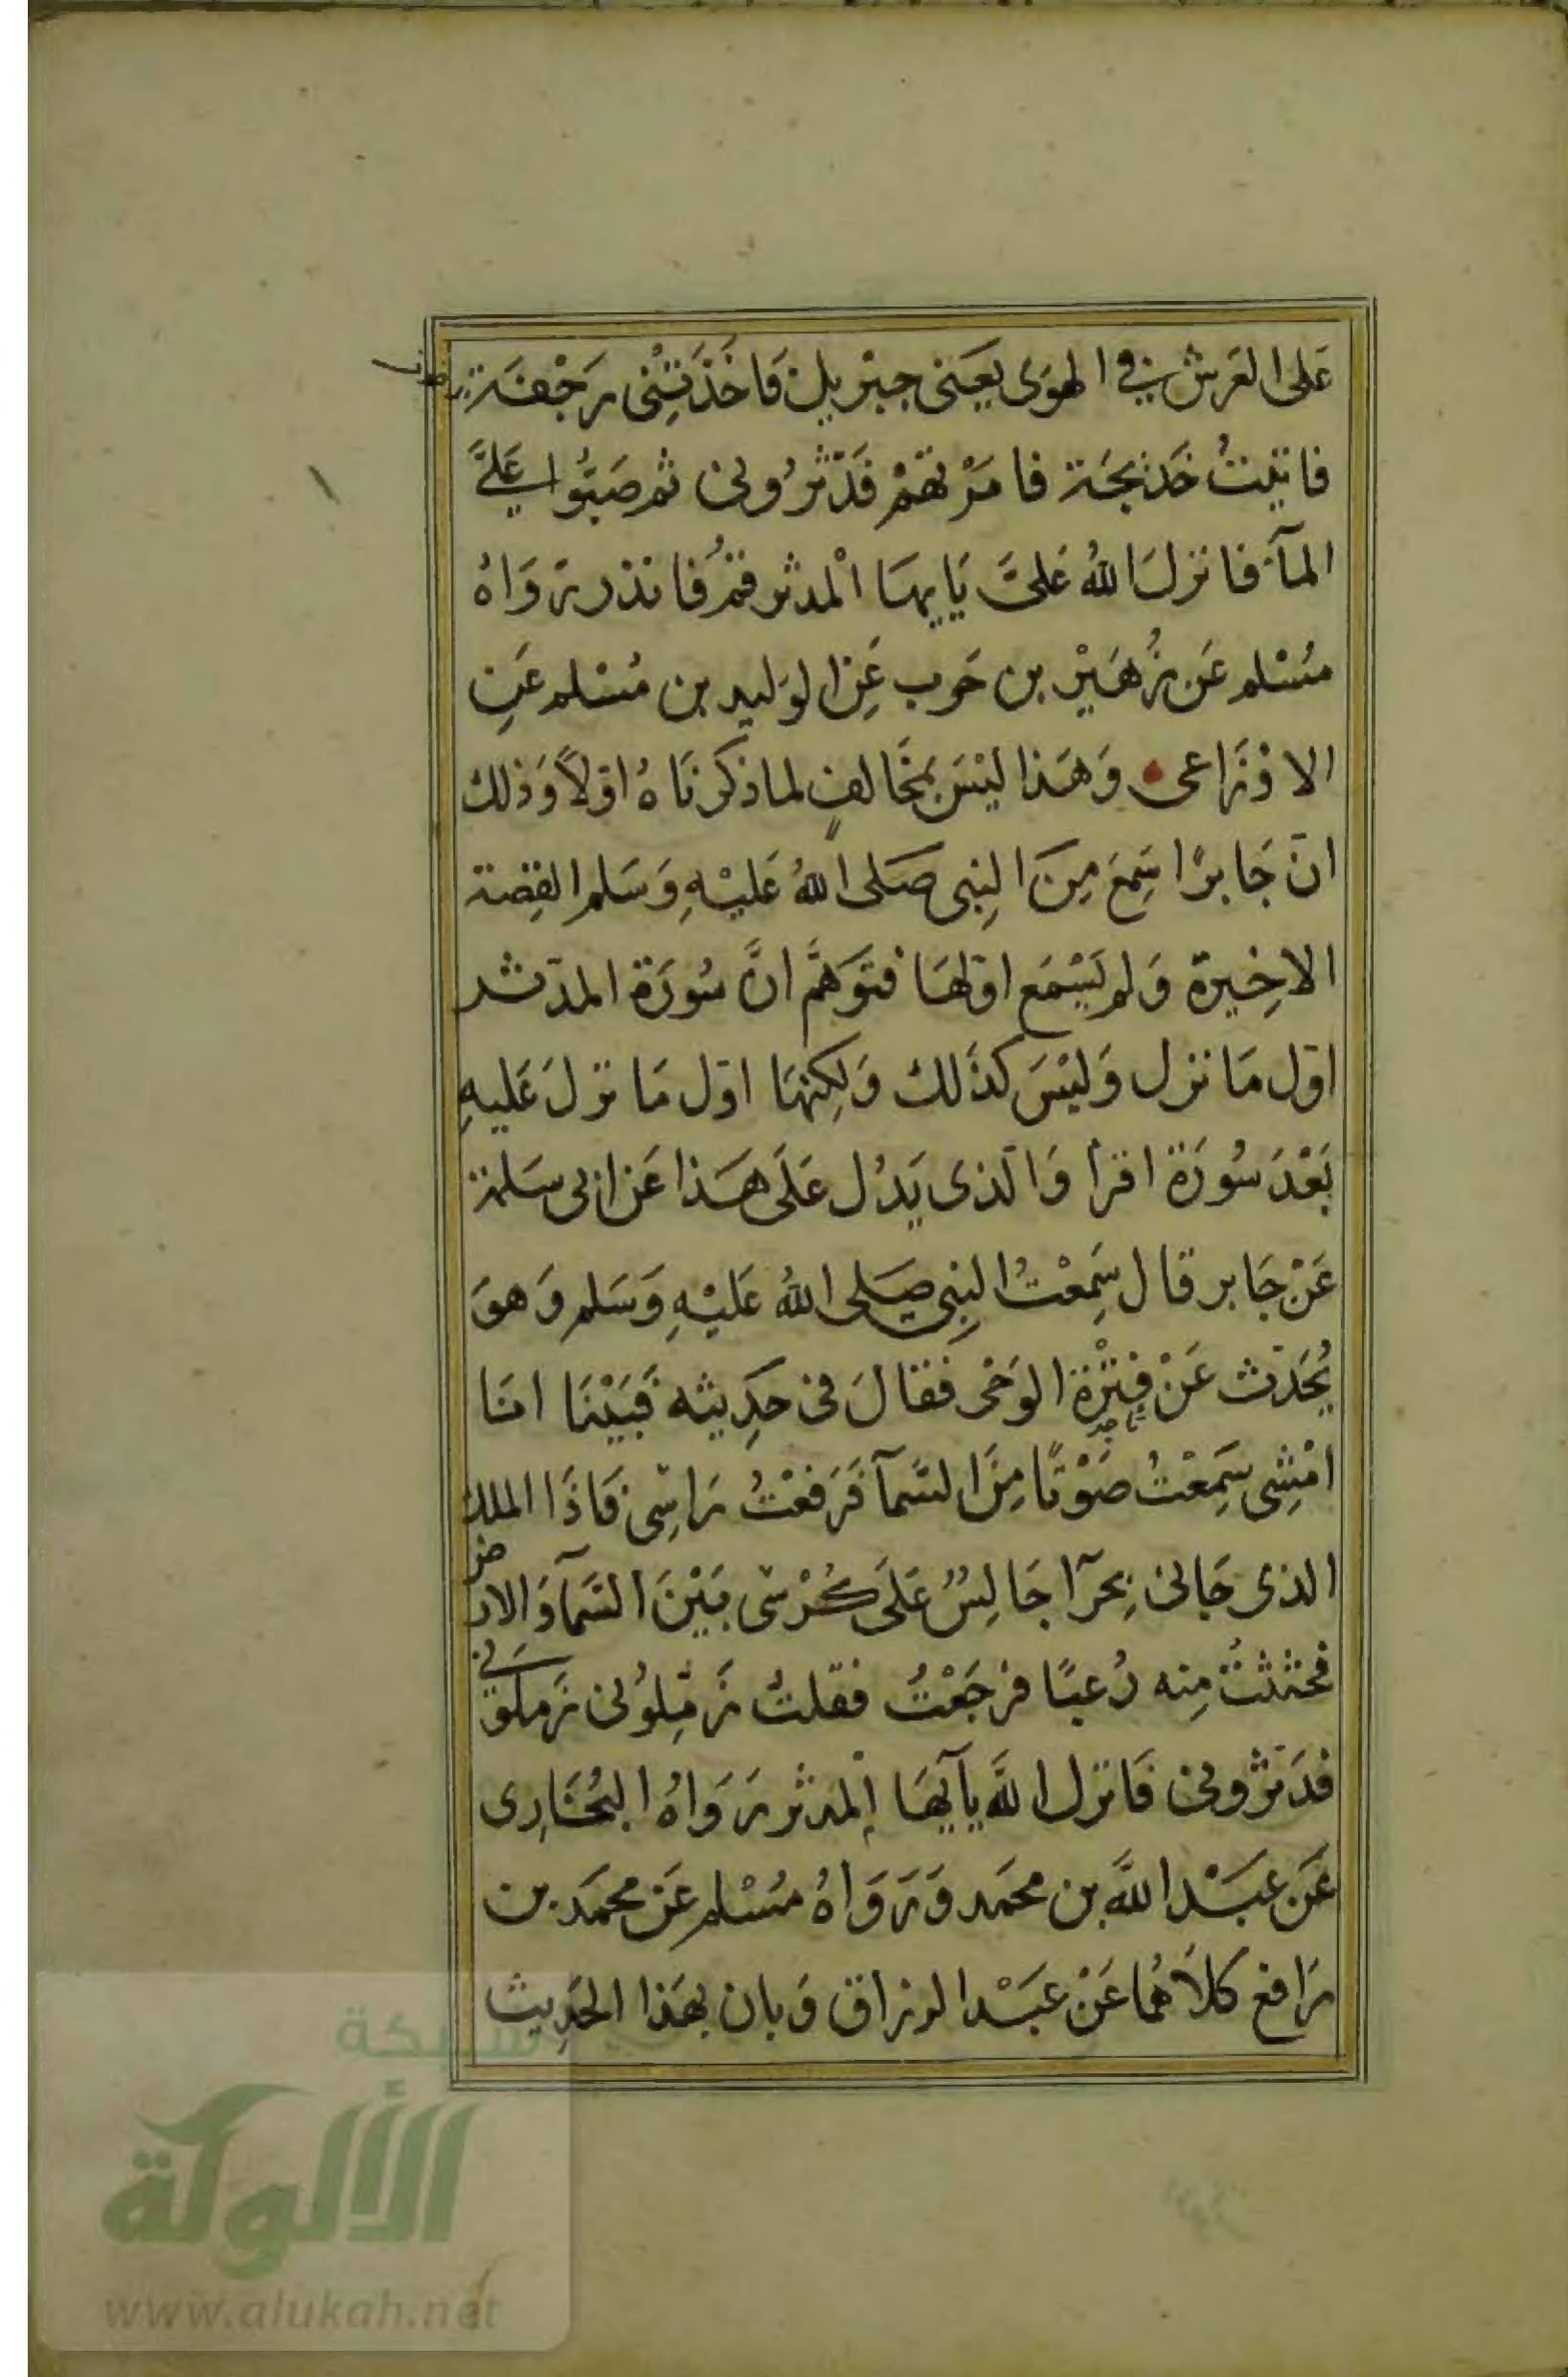 عَلى العَرش في الهوَى يَعَنى جبْريل فَاخَذَتِنْى رَجْفَة
فاتيتُ خَديجَة فامَرْتهمْ فَدَثرُونى ثم صَبُّوا عَلىَّ
المآء فانزلَ اللهُ عَلىَّ يَايهَا الْمدثر قمْ فَانذر رَوَاهُ
مُسْلم عَن زُهَيْر بن حَرب عَنِ الوَليد بن مُسْلم عَنِ
الاوْزَاعى وَهَذا ليْسَ بمخَالفٍ لما ذكرنَاهُ اوّلاً وَذلك
انّ جَابرًا سَمِعَ مِنَ النِبى صَلى اللهُ عَليْهِ وَسَلم القِصة
الاخِيرة وَلم يَسْمَع اوّلهَا فتوَهَّمَ انَّ سُورَة المدّثر
اوّل مَا نزل وَليْسَ كذَلك وَلكِنهَا اوّل مَا نزلَ عَليهِ
بَعْدَ سُورَة اقرأ وَالّذى يَدُل عَلَى هَذا عَن ابى سَلمة
عَنْ جَابر قال سَمِعْتُ النِبى صَلى اللهُ عَليْهِ وَسَلم وَهوَ
يُحَدّث عَنْ فتْرَة الوَحْى فَقالَ فى حَدِيثه فَبَيْنَا انَا
امْشِى سَمِعْتُ صَوْتًا مِنَ السّمآ فَرَفعْتُ رَاسِى فَاذَا الملك
الذى جَانى بِحرآ جَالِسٌ عَلَى كُرْسّى بَيْنَ السَمآ وَالارض
فجثثتُ مِنه رُعبًا فرجَعْتُ فقلتُ زَمّلوُنى زملونى
فدَثرُونى فَانزل اللَّه يآيهَا المدثر رَوَاهُ البُخَارِى
عَن عبَدْ اللَّه بن محمَد وَرَوَاهُ مُسْلم عَنْ محمَد بن
رَافع كلاَهُما عَنْ عبَدْ الرزاق وَبان بهَذا الحَدِيث
شبكة
الألوكة
www.alukah.net